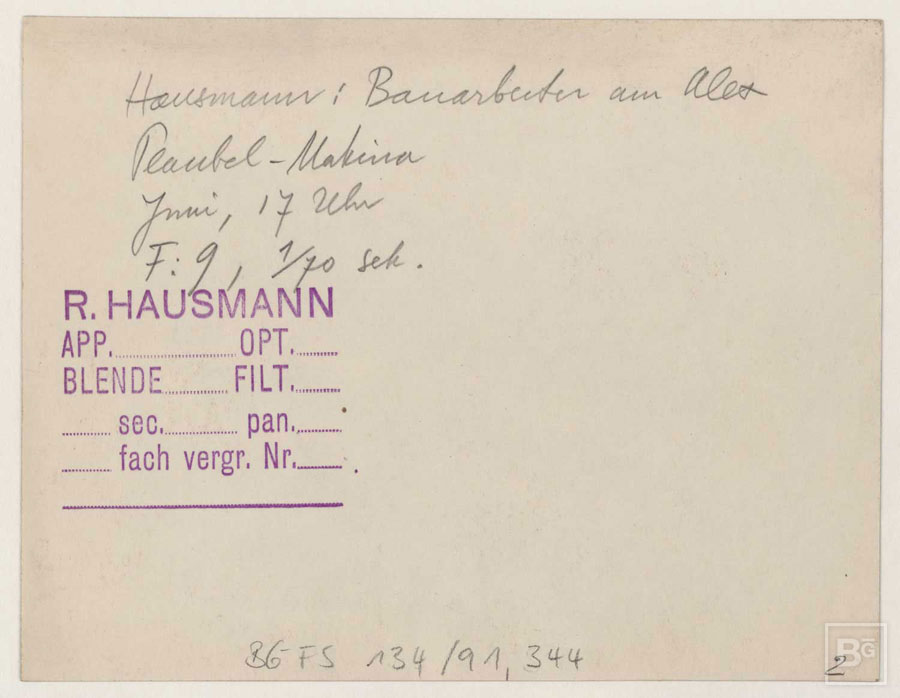 Hausmann: Bauarbeiter am Alex
Plaubel-Makina
Juni, 17 Uhr
F: 9, 1/70 sek.
R. HAUSMANN
APP. OPT.
BLENDE FILT.
sec. pan.
fach vergr. Nr.
BG FS 134/91, 344
2
BG